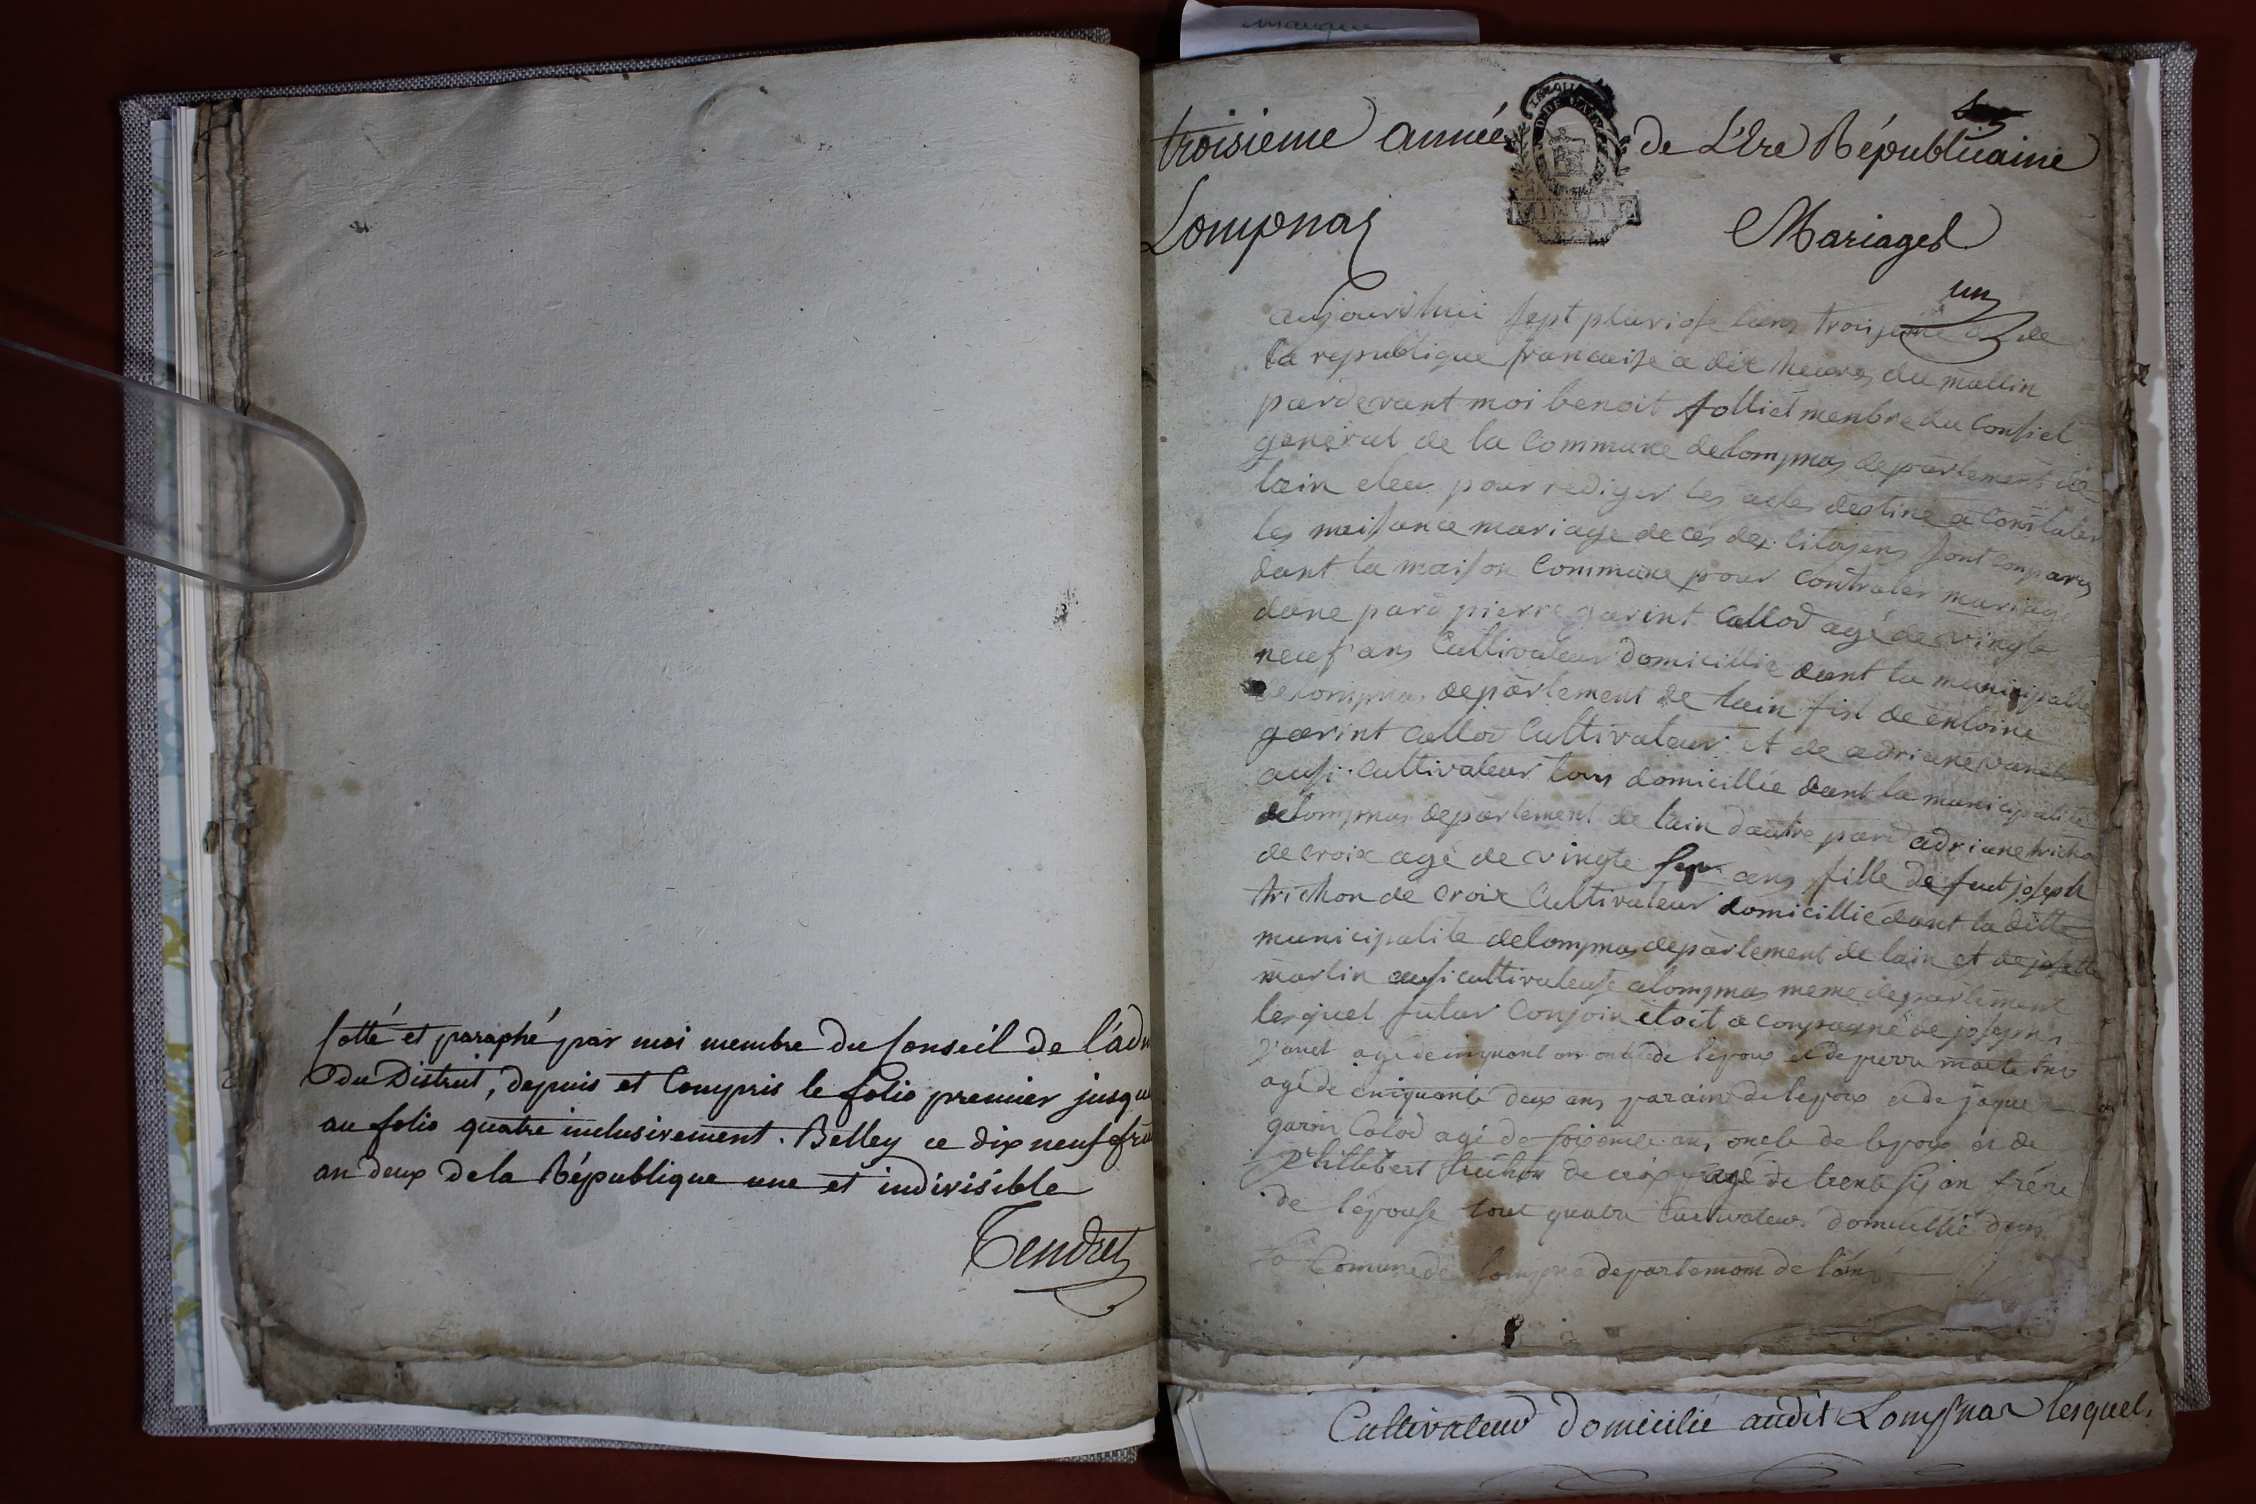 Cotté et paraphé par moi membre du Conseil de l'adm
du District, depuis et Compris le folio premier jusqu
au folio quatre inclusivement. Belley ce dix neuf fru
an deux de la République une et indivisible
Tendret
manque
troisieme année de L'Ere Républicaine
Lompnas Mariages
un
aujourdhui sept pluviose lans troisieme de
la republique francaise a dix heures du mattin
pardevant moi benoit folliet menbre du Consiel
general de la Commune delompnas departement de
lain eleu pour rediger les acte destine a Constater
les naissance mariage decés des Citoyens sont conparus
dant la maison Commune pour Contrater mariage
dune pard pierre garint Callod agé de vingte
neuf ans Cultivateur domicillié dant la municipalité
delompnas departement de lain fist de entoine
garint Callod Cultivateur et de adriane
ausi Cultivateur tous domicillié dant la municipalité
delompnas departement de lain dautre pard adriane tricho
de croix agé de vingte sept ans fille de feut joseph
trichon de croix Cultivateur domicillié dant la ditte
municipalite delompnas departement de lain et de josette
martin ausi cultivateuse a lompnas meme departement
lesquel futur Conjoin etoit aconpagné de joseph
janet agé de cinquant an oncle de lepoux et de pierre
agé de cinquante deux ans parain de lepoux et de jaque
garin Colod agé de soixante ans oncle de lepoux et de
Philibert trichon de croix agé de trente six an frére
de l'épouse tout quatre Cultivateurs domicillié dans
la Comune de lompna departemont de l'ain
Cultivateur domicilié audit Lompnas lesquel.